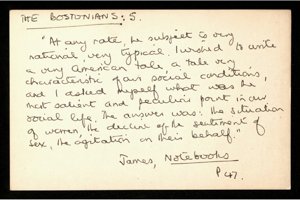 THE BOSTONIANS: 5.
"At any rate, the subject is very
national, very typical. I wished to write
a very American tale, a tale very
characteristic of our social conditions,
and I asked myself what was the
most salient and peculiar point in our
social life. The answer was: the situation
of women, the decline of the sentiment of
sex, the agitation on their behalf."
James, Notebooks
p 47.